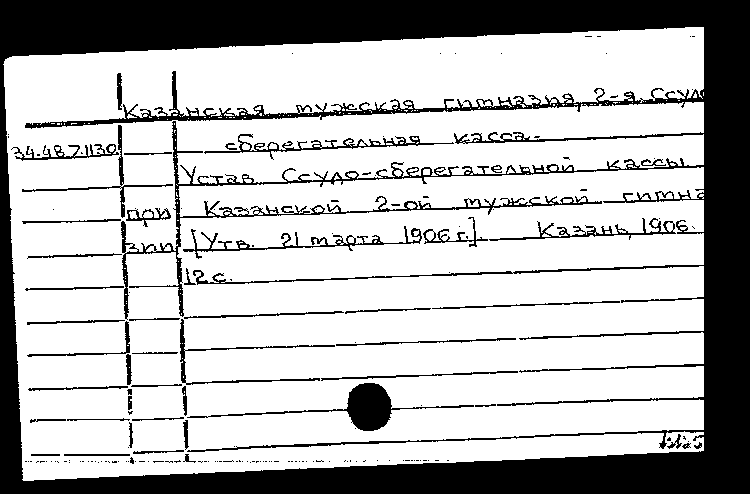 Казанская мужская гимназия, 2-я. Ссудо
сберегательная касса.
34.48.7.1130
Устав Ссудо-сберегательной кассы
при Казанской 2-ой мужской гимна
зии [Утв. 21 марта 1906 г.]. Казань, 1906.
12 с.